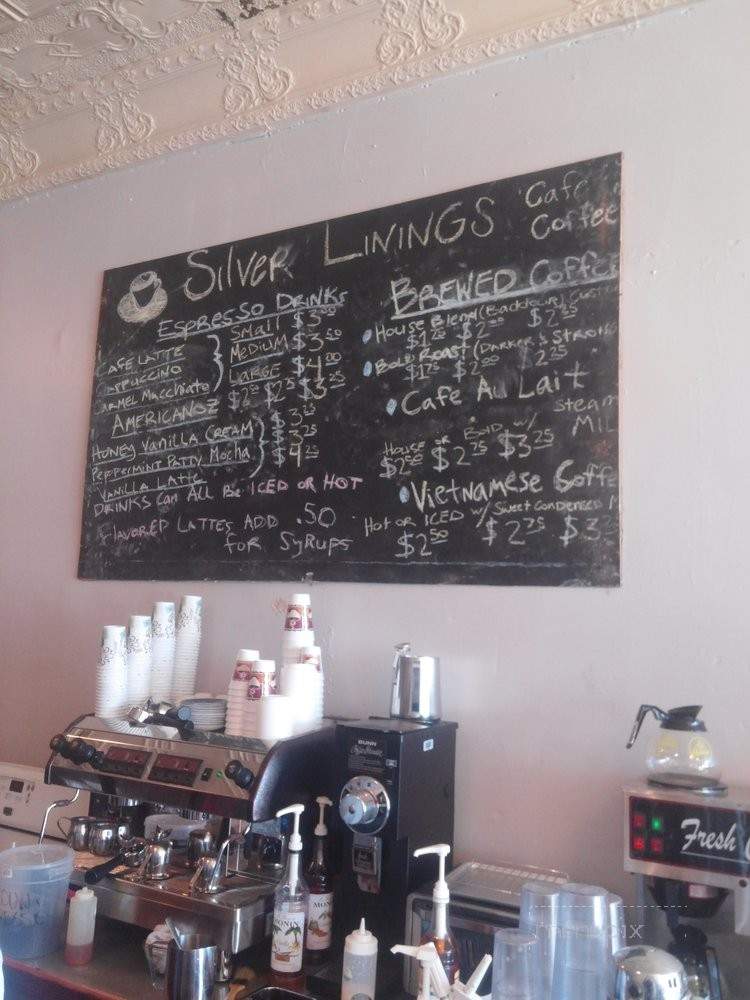 SILVER LININGS Cafe
Coffee
ESPRESSO DRINKS
SMALL $3.00
CAFE LATTE MEDIUM $3.50
CAPPUCCINO LARGE $4.00
CARMEL Macchiato $2.00 $2.75 $3.25
AMERICANOZ
HONEY VANILLA CREAM
PEPPERMINT PATTY MOCHA $4.25
VANILLA LATTE
DRINKS CAN ALL BE ICED OR HOT
FLAVORED LATTES ADD .50
FOR SYRUPS
BREWED Coffee
HOUSE Blend (Backdour)
$1.75 $2.00 $2.25
BOLD Roast (DARKER & STRONG
$1.75 $2.00 $2.25
Cafe Au Lait
HOUSE OR BOLD w/ steam
$2.50 $2.75 $3.25 MIL
Vietnamese Coffe
HOT OR ICED w/ Sweet Condensed M
$2.50 $2.75 $3.
BUNN
Fresh
MONIN
MONIN